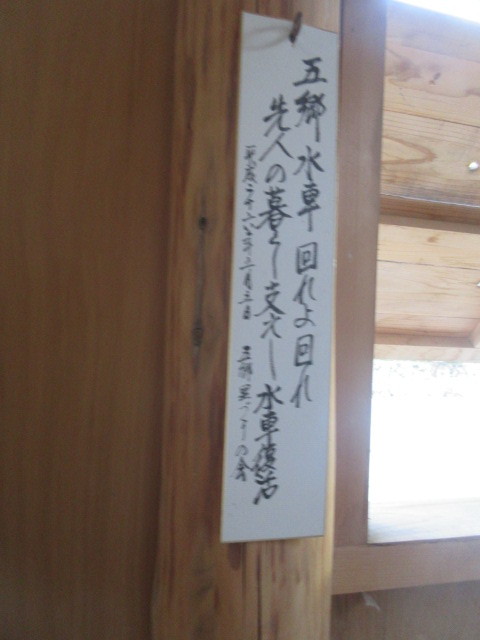 五郷水車 回れよ回れ
先人の暮らし支えし水車復活
平成二十六年三月三日 五郷里づくりの会